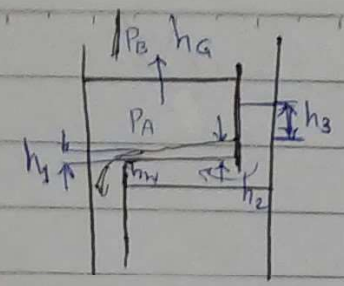 PB hG
PA
h3
h1
hw
h2